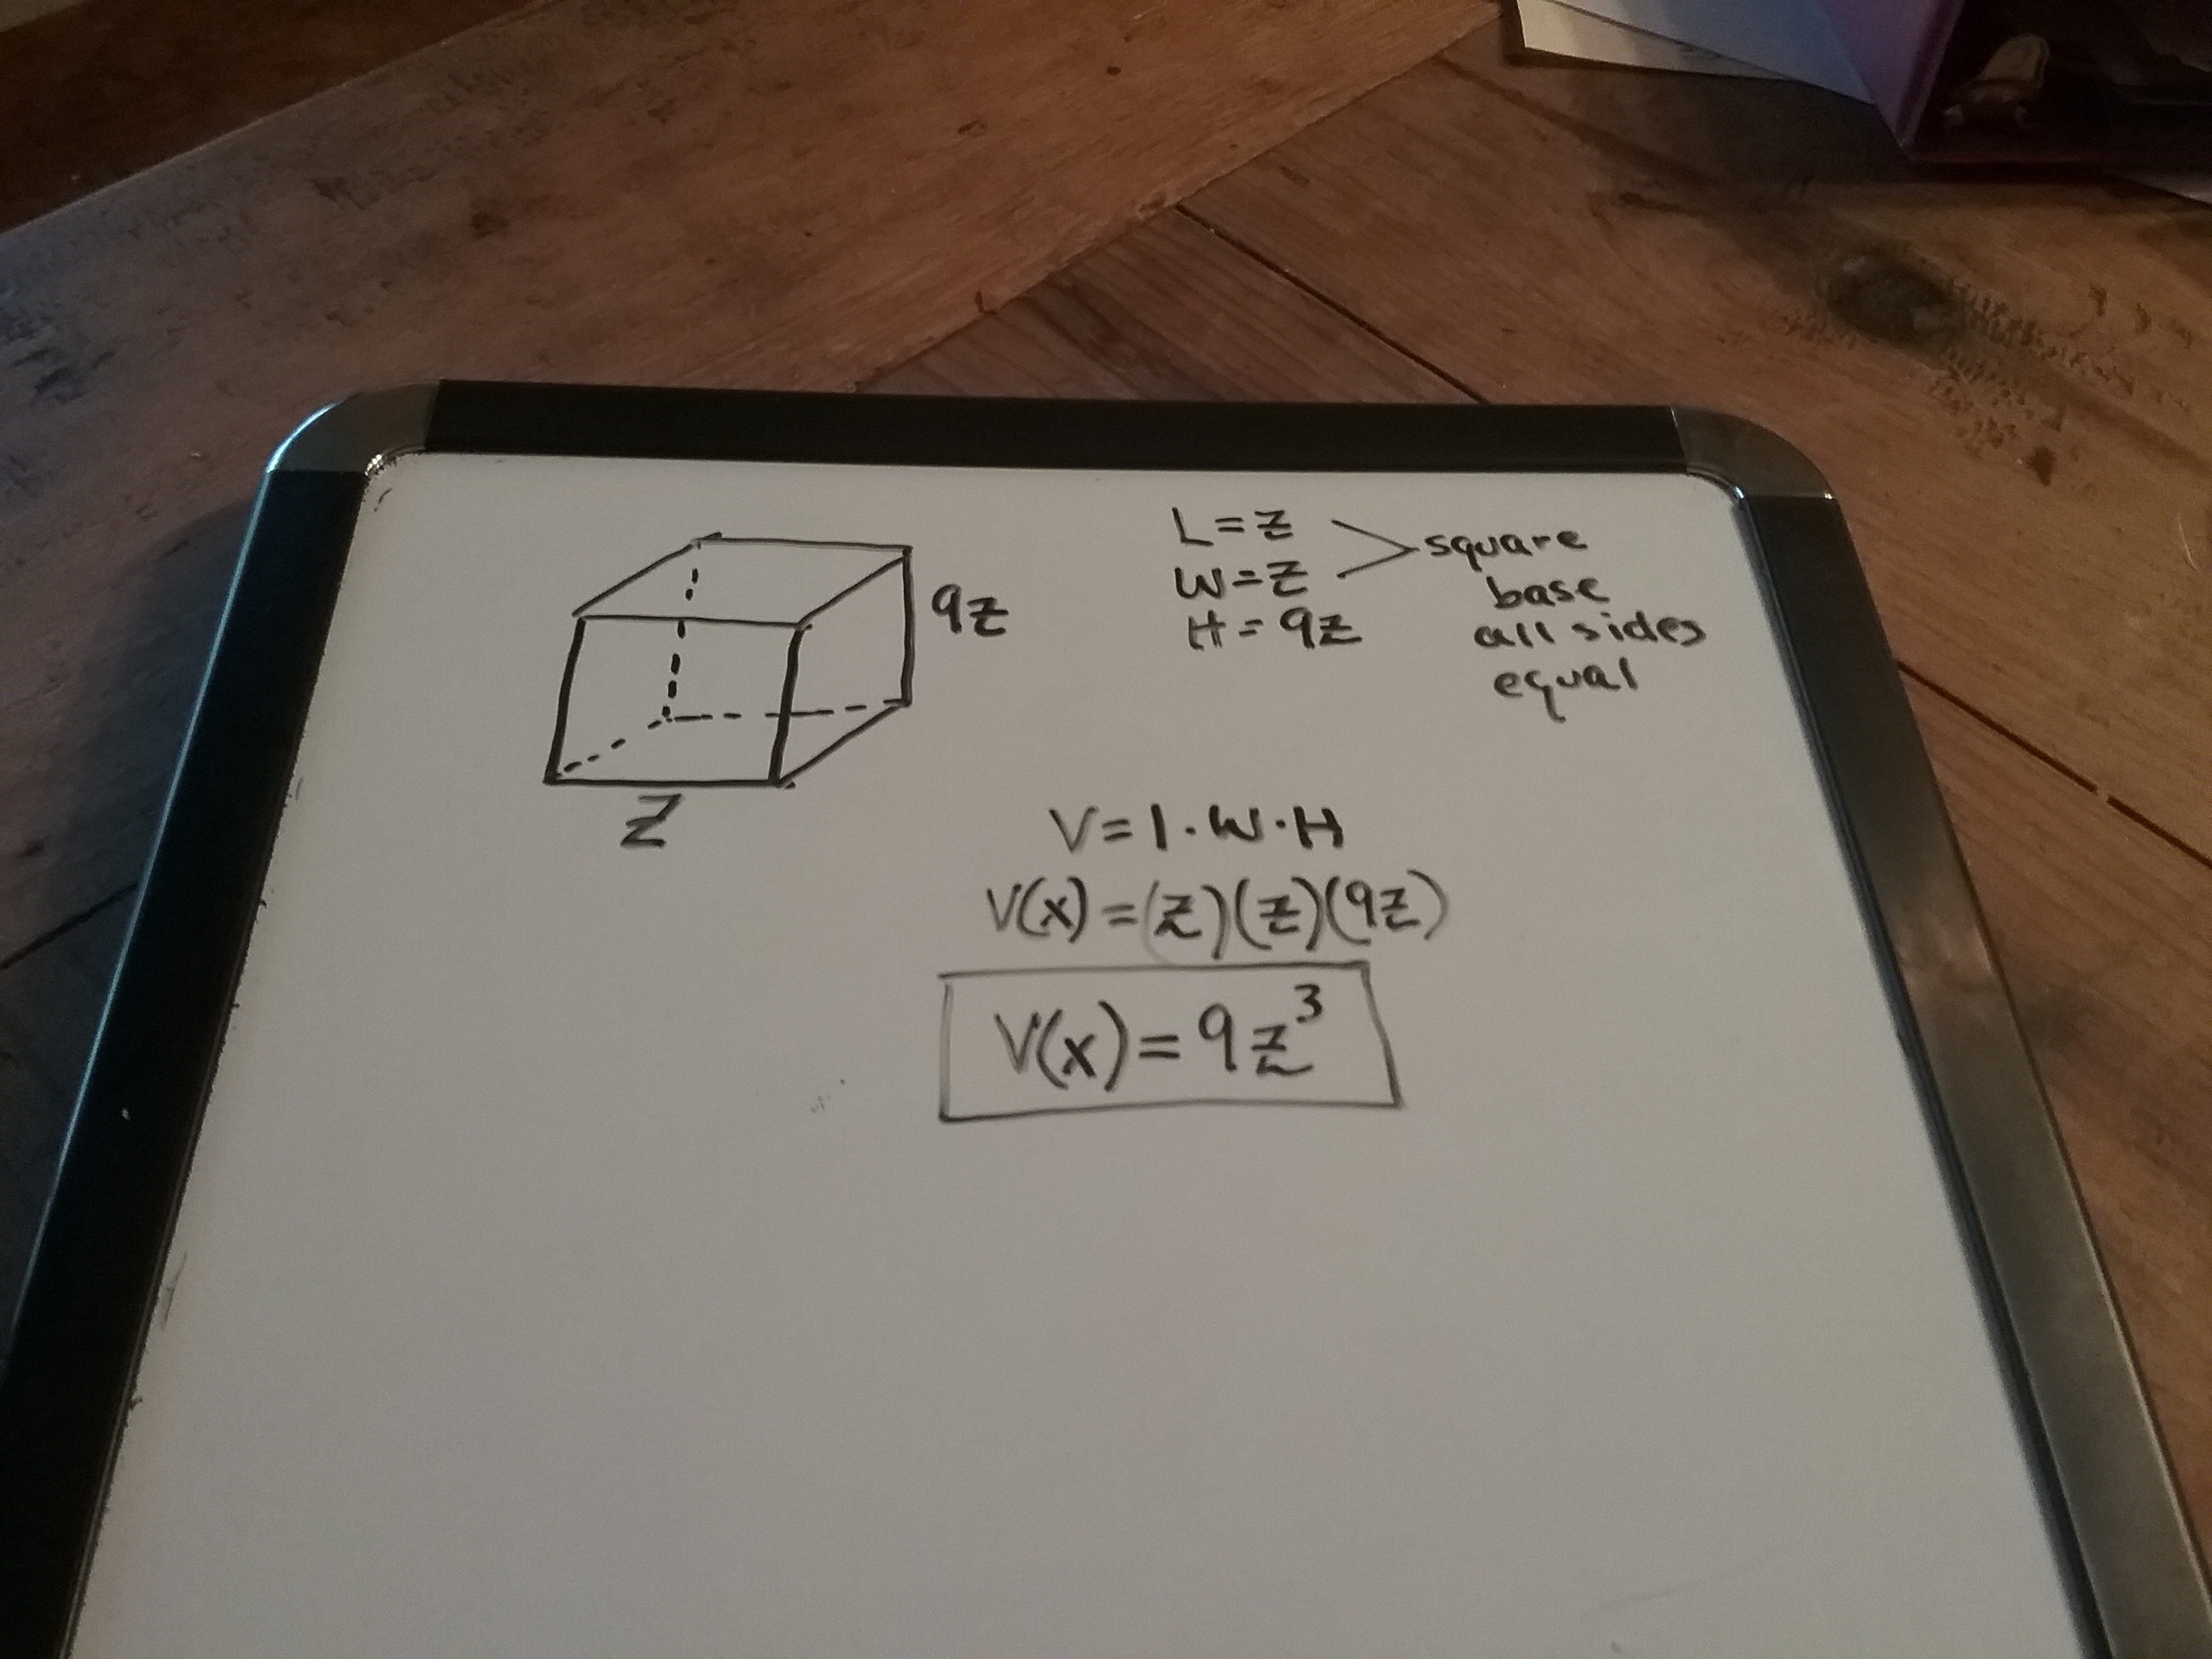 9z
z
L=z
W=z
H=9z
square
base
all sides
equal
V=l·W·H
V(x)=(z)(z)(9z)
V(x)=9z³